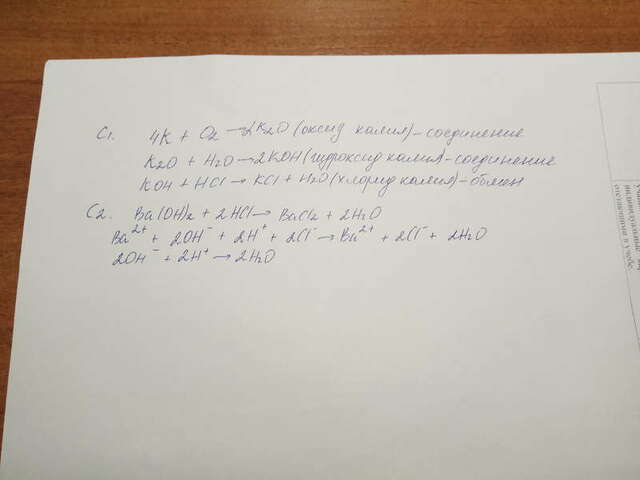 C1. 4K + O2 → 2K2O (оксид калия) - соединение
K2O + H2O → 2KOH (гидроксид калия) - соединение
KOH + HCl → KCl + H2O (хлорид калия) - обмен
C2. Ba(OH)2 + 2HCl → BaCl2 + 2H2O
Ba²⁺ + 2OH⁻ + 2H⁺ + 2Cl⁻ → Ba²⁺ + 2Cl⁻ + 2H2O
2OH⁻ + 2H⁺ → 2H2O